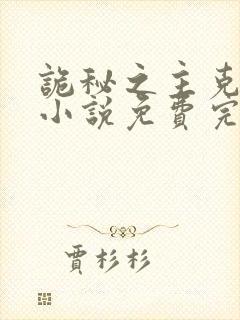 詭秘之主克
小說免費完
賈杉杉